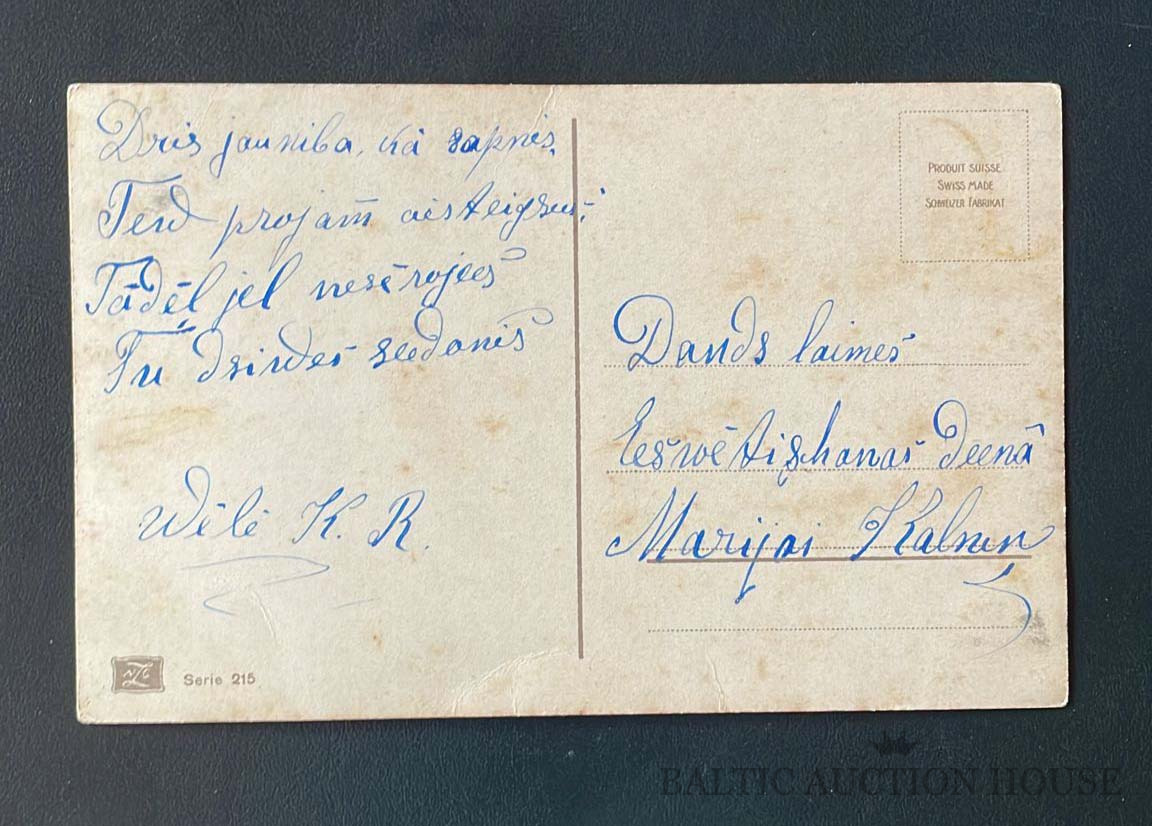 Dris jauniba, kā sapnis,
Terd projam aisteigsees;
Tādēļ jel nesērojees
Tu dsirdes seedonis
Wēlē K. R.
Serie 215
PRODUIT SUISSE
SWISS MADE
SCHWEIZER FABRIKAT
Dauds laimes
Eeswētishanas deenā
Marijai Kalnen
BALTIC AUCTION HOUSE